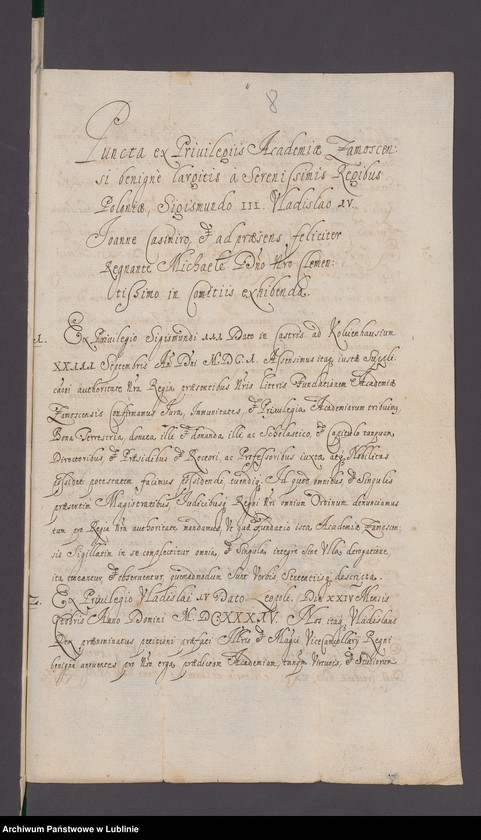 8
Puncta ex Privilegiis Academiæ Zamoscen:
si benignè largitis a Serenissimis Regibus
Poloniæ, Sigismundo III. Vladislao IV.
Joanne Casimiro, & ad præsens feliciter
Regnante Michaele Dño Nro Clemen:
tissimo in Comitiis exhibenda.
1. Ex Privilegio Sigismundi III Dato in Castris ad
XXIII Septembris Añ Dñi M.DC.I. Assensimus itaq iustæ Supli:
caõni authoritate Nra Regia, præsentibus Nris literis Fundationem Academiæ
Zamoscensis Confirmamus Jura, Immunitates, & Privilegia Academiarum tribuimq
Bona Terrestria, donata illi & donanda illi ac Scholastico, & Capitulo tanquam
Directoribus, & Præsidibus & Rectori, ac Professoribus iuxta atq Nobilitas
possidet potestatem facimus possidendi Id quod omnibus, & Singulis
præsertim Magistratibus, Judicibusq Regni Nri omnium Ordinum denunciamus
tum pro Regia Nra authoritate mandamus, Ut quæ Fundatio ista Academiæ Zamoscen:
sis Sigillatim in se complectitur omnia, & Singula integrè Sine Ulla derogatione
ita teneantur & observentur quemadmodum Sunt Verbis, Sententiisq descripta.
2. Ex Privilegio Vladislai IV Dato Leopoli. Die XXIV Mensis
8bris Anno Domini M.DCXXXIV. Nos itaq Vladislaus
Rex prænominatus, petitioni præfati Illris & Magci Vicecancellarii Regni
benignè annuentes pro Nro erga prædictam Academiam, tanqm Virtutis, & Studiorum
Archiwum Państwowe w Lublinie